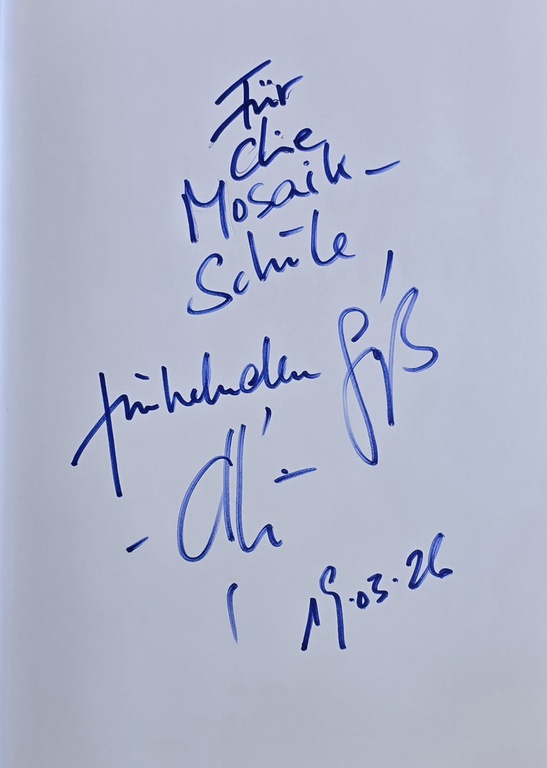 Für
die
Mosaik-
Schule
funkelnden Gruß
19.03.26